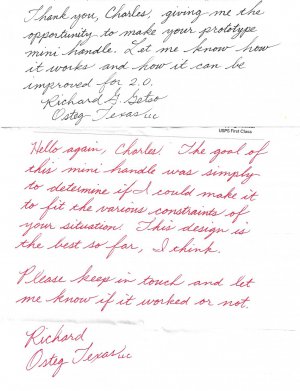 Thank you, Charles, giving me the
opportunity to make your prototype
mini handle. Let me know how
it works and how it can be
improved for 2.0.
Richard G.
Osteg Texas LLC
USPS First Class
Hello again, Charles. The goal of
this mini handle was simply
to determine if I could make it
to fit the various constraints of
your situation. This design is
the best so far, I think.
Please keep in touch and let
me know if it worked or not.
Richard
Osteg Texas LLC